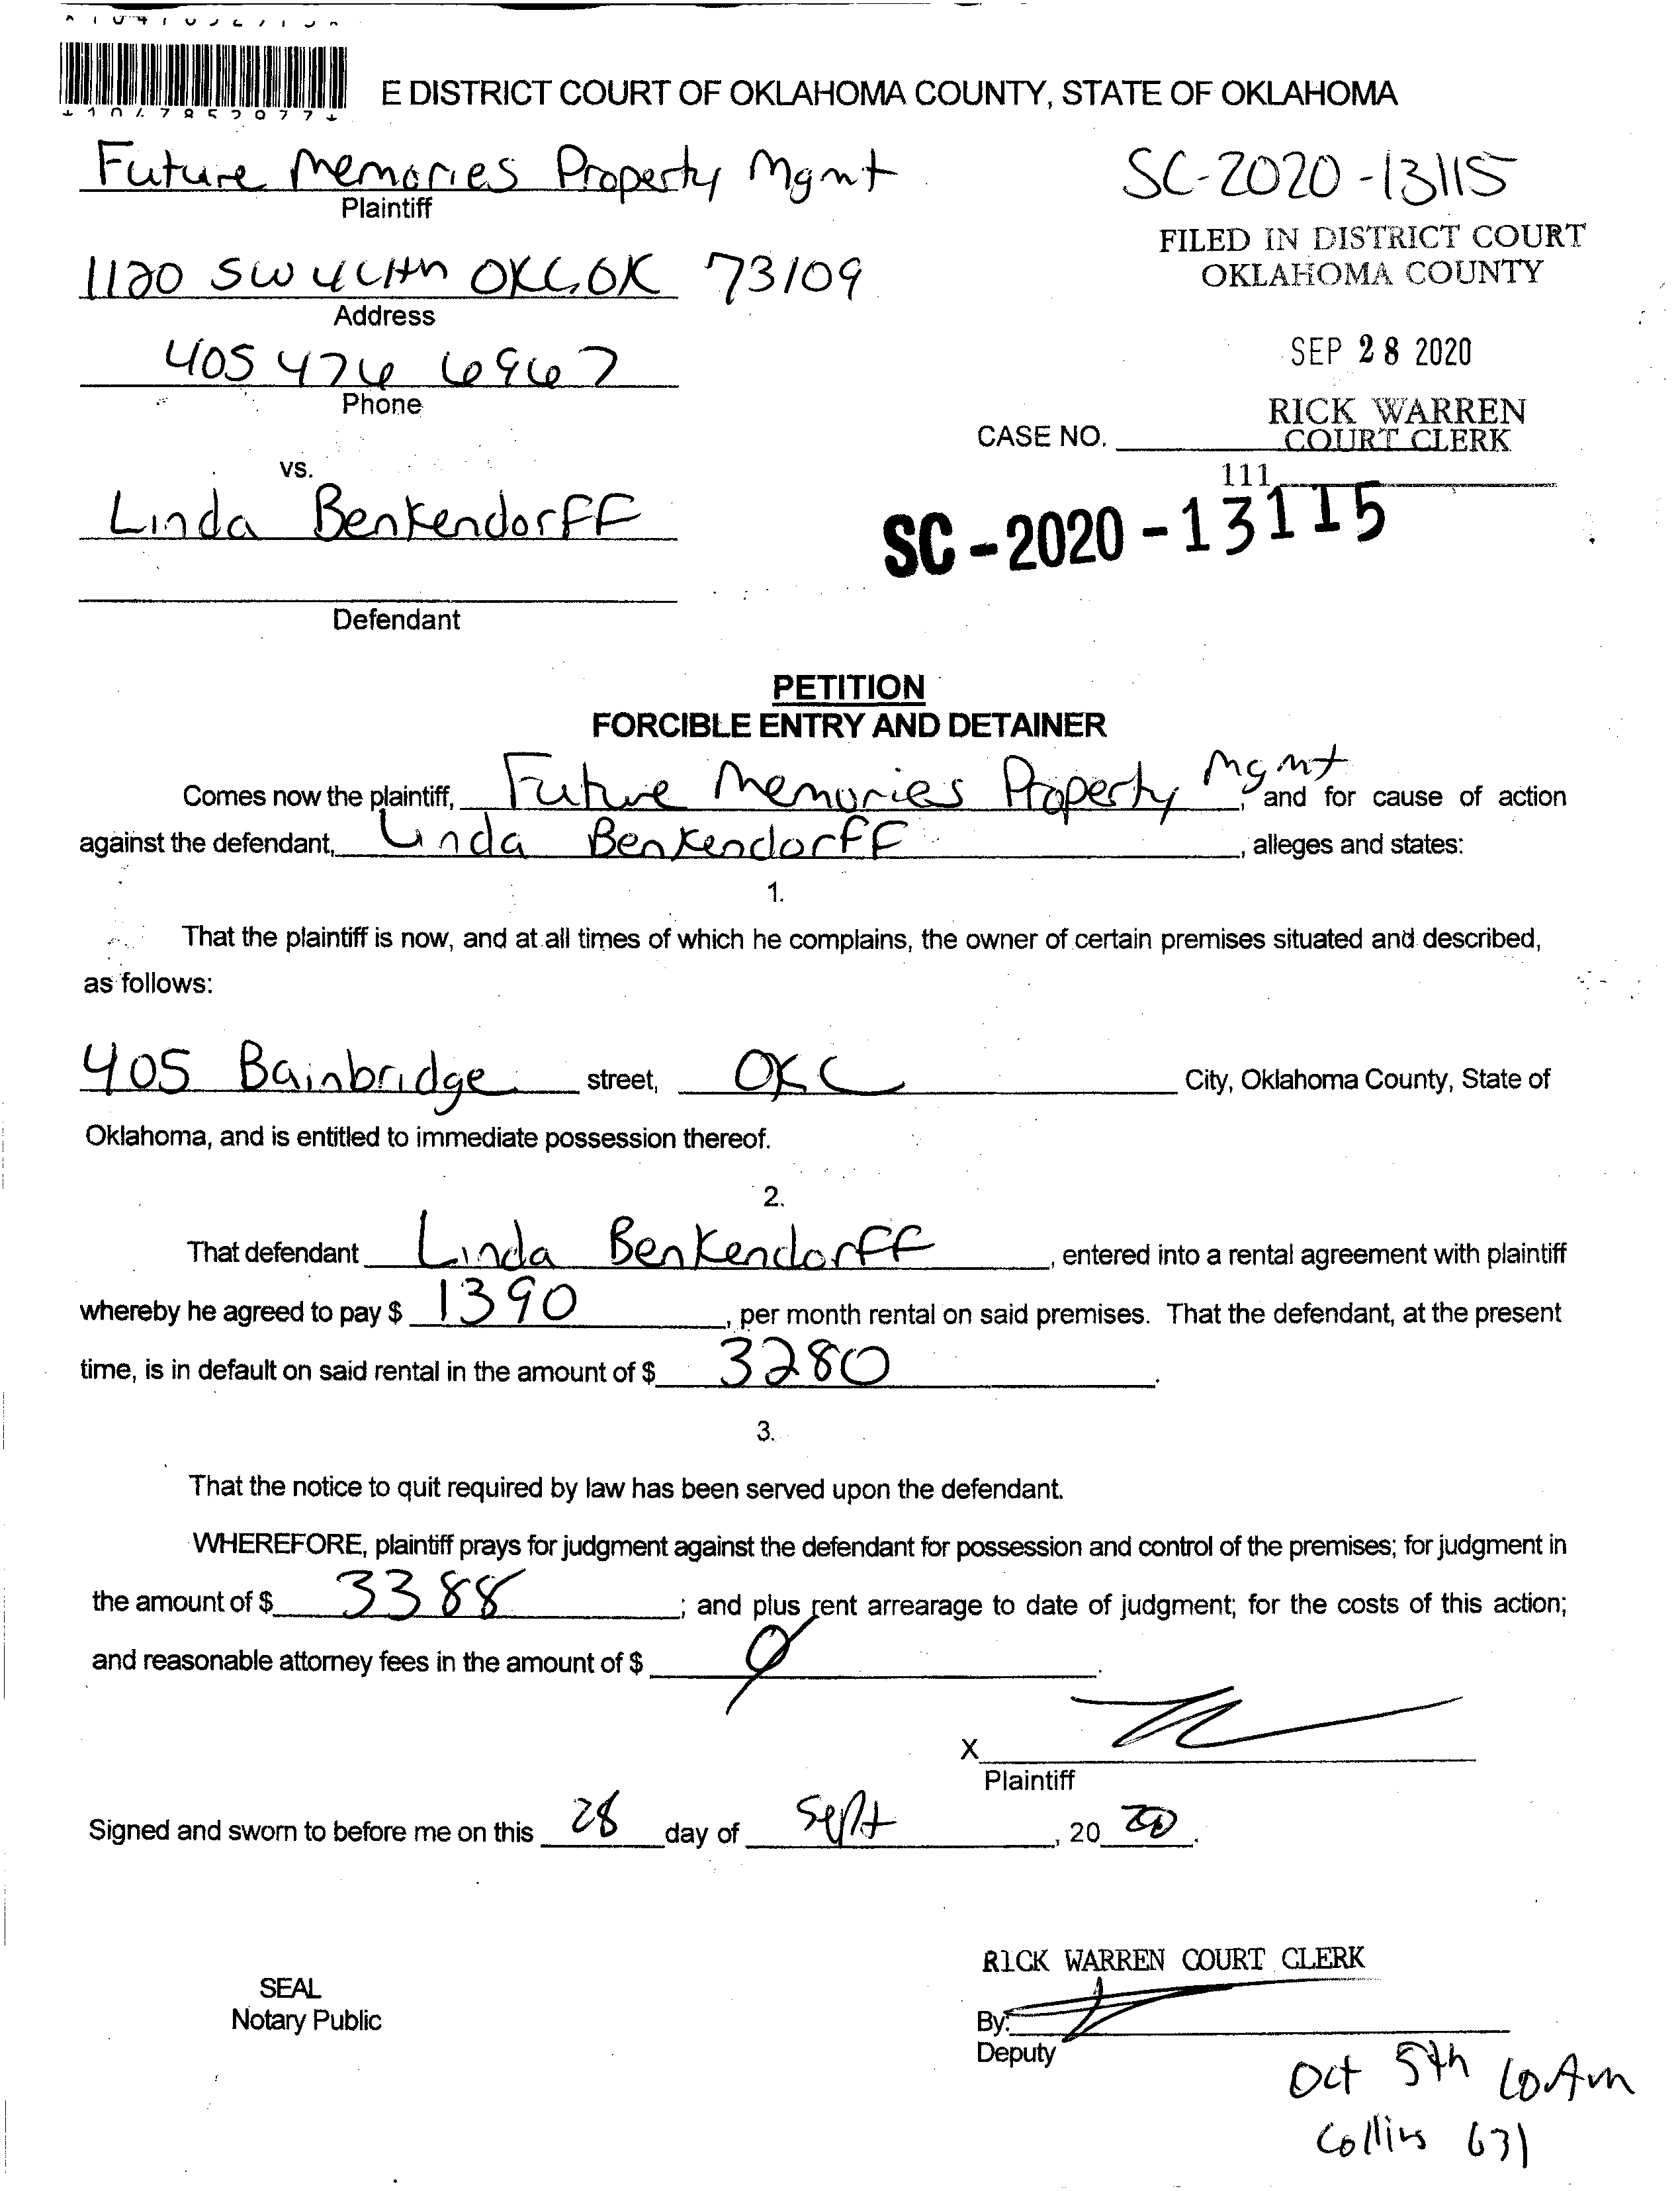 E DISTRICT COURT OF OKLAHOMA COUNTY, STATE OF OKLAHOMA
Future Memories Property Mgmt
Plaintiff
SC-2020-13115
FILED IN DISTRICT COURT
OKLAHOMA COUNTY
1120 SW 44th OKC, OK 73109
Address
SEP 28 2020
405 476 6967
Phone
RICK WARREN
COURT CLERK
CASE NO.
111
vs.
Linda Benkendorff
SC-2020-13115
Defendant
PETITION
FORCIBLE ENTRY AND DETAINER
Comes now the plaintiff, Future Memories Property Mgmt, and for cause of action
against the defendant, Linda Benkendorff, alleges and states:
1.
That the plaintiff is now, and at all times of which he complains, the owner of certain premises situated and described,
as follows:
405 Bainbridge street, OKC City, Oklahoma County, State of
Oklahoma, and is entitled to immediate possession thereof.
2.
That defendant Linda Benkendorff, entered into a rental agreement with plaintiff
whereby he agreed to pay $ 1390, per month rental on said premises. That the defendant, at the present
time, is in default on said rental in the amount of $ 3280.
3.
That the notice to quit required by law has been served upon the defendant.
WHEREFORE, plaintiff prays for judgment against the defendant for possession and control of the premises; for judgment in
the amount of $ 3388; and plus rent arrearage to date of judgment; for the costs of this action;
and reasonable attorney fees in the amount of $ 0.
X
Plaintiff
Signed and sworn to before me on this 28 day of Sept, 2020.
RICK WARREN COURT CLERK
SEAL
Notary Public
By:
Deputy
Oct 5th 10 Am
Collins 631